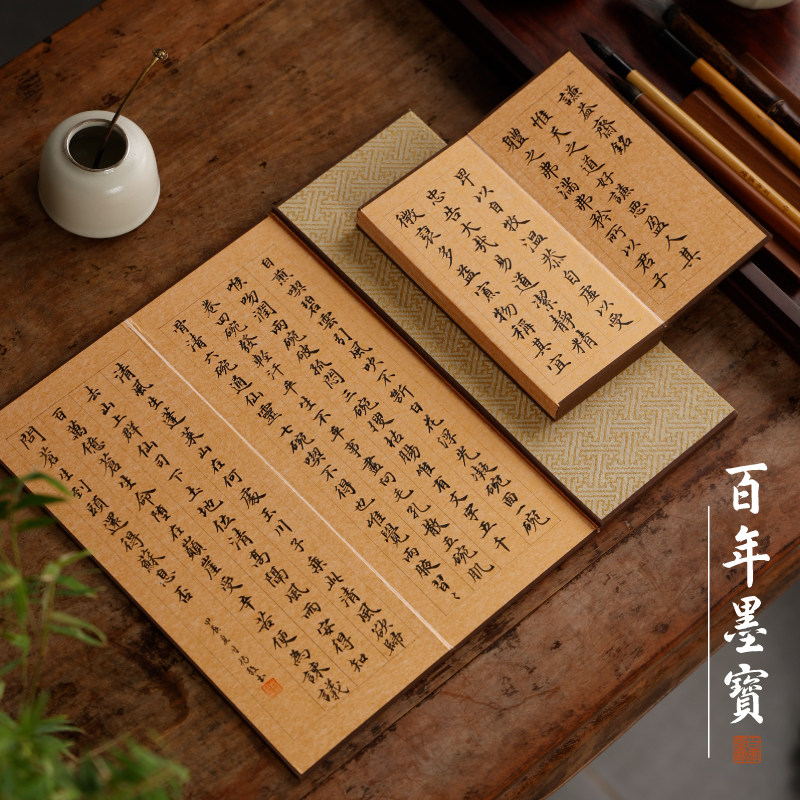 謙益齋銘
惟天之道好謙惡盈人其
體之弗滿弗矜所以君子
卑以自牧溫恭自虛以受
忠告大哉易道潔靜精
微裒多益寡物稱其宜
自煎喫碧雲引風吹不斷白花浮光凝碗面一碗
喉吻潤兩碗破孤悶三碗搜枯腸惟有文字五千
卷四碗發輕汗平生不平事盡向毛孔散五碗肌
骨清六碗通仙靈七碗喫不得也唯覺兩腋習〻
清風生蓬萊山在何處玉川子乘此清風欲歸
去山上群仙司下土地位清高隔風雨安得知
百萬億蒼生命墮在巔崖受辛苦便為諫議
問蒼生到頭還得蘇息否
甲辰夏月
百年墨寶